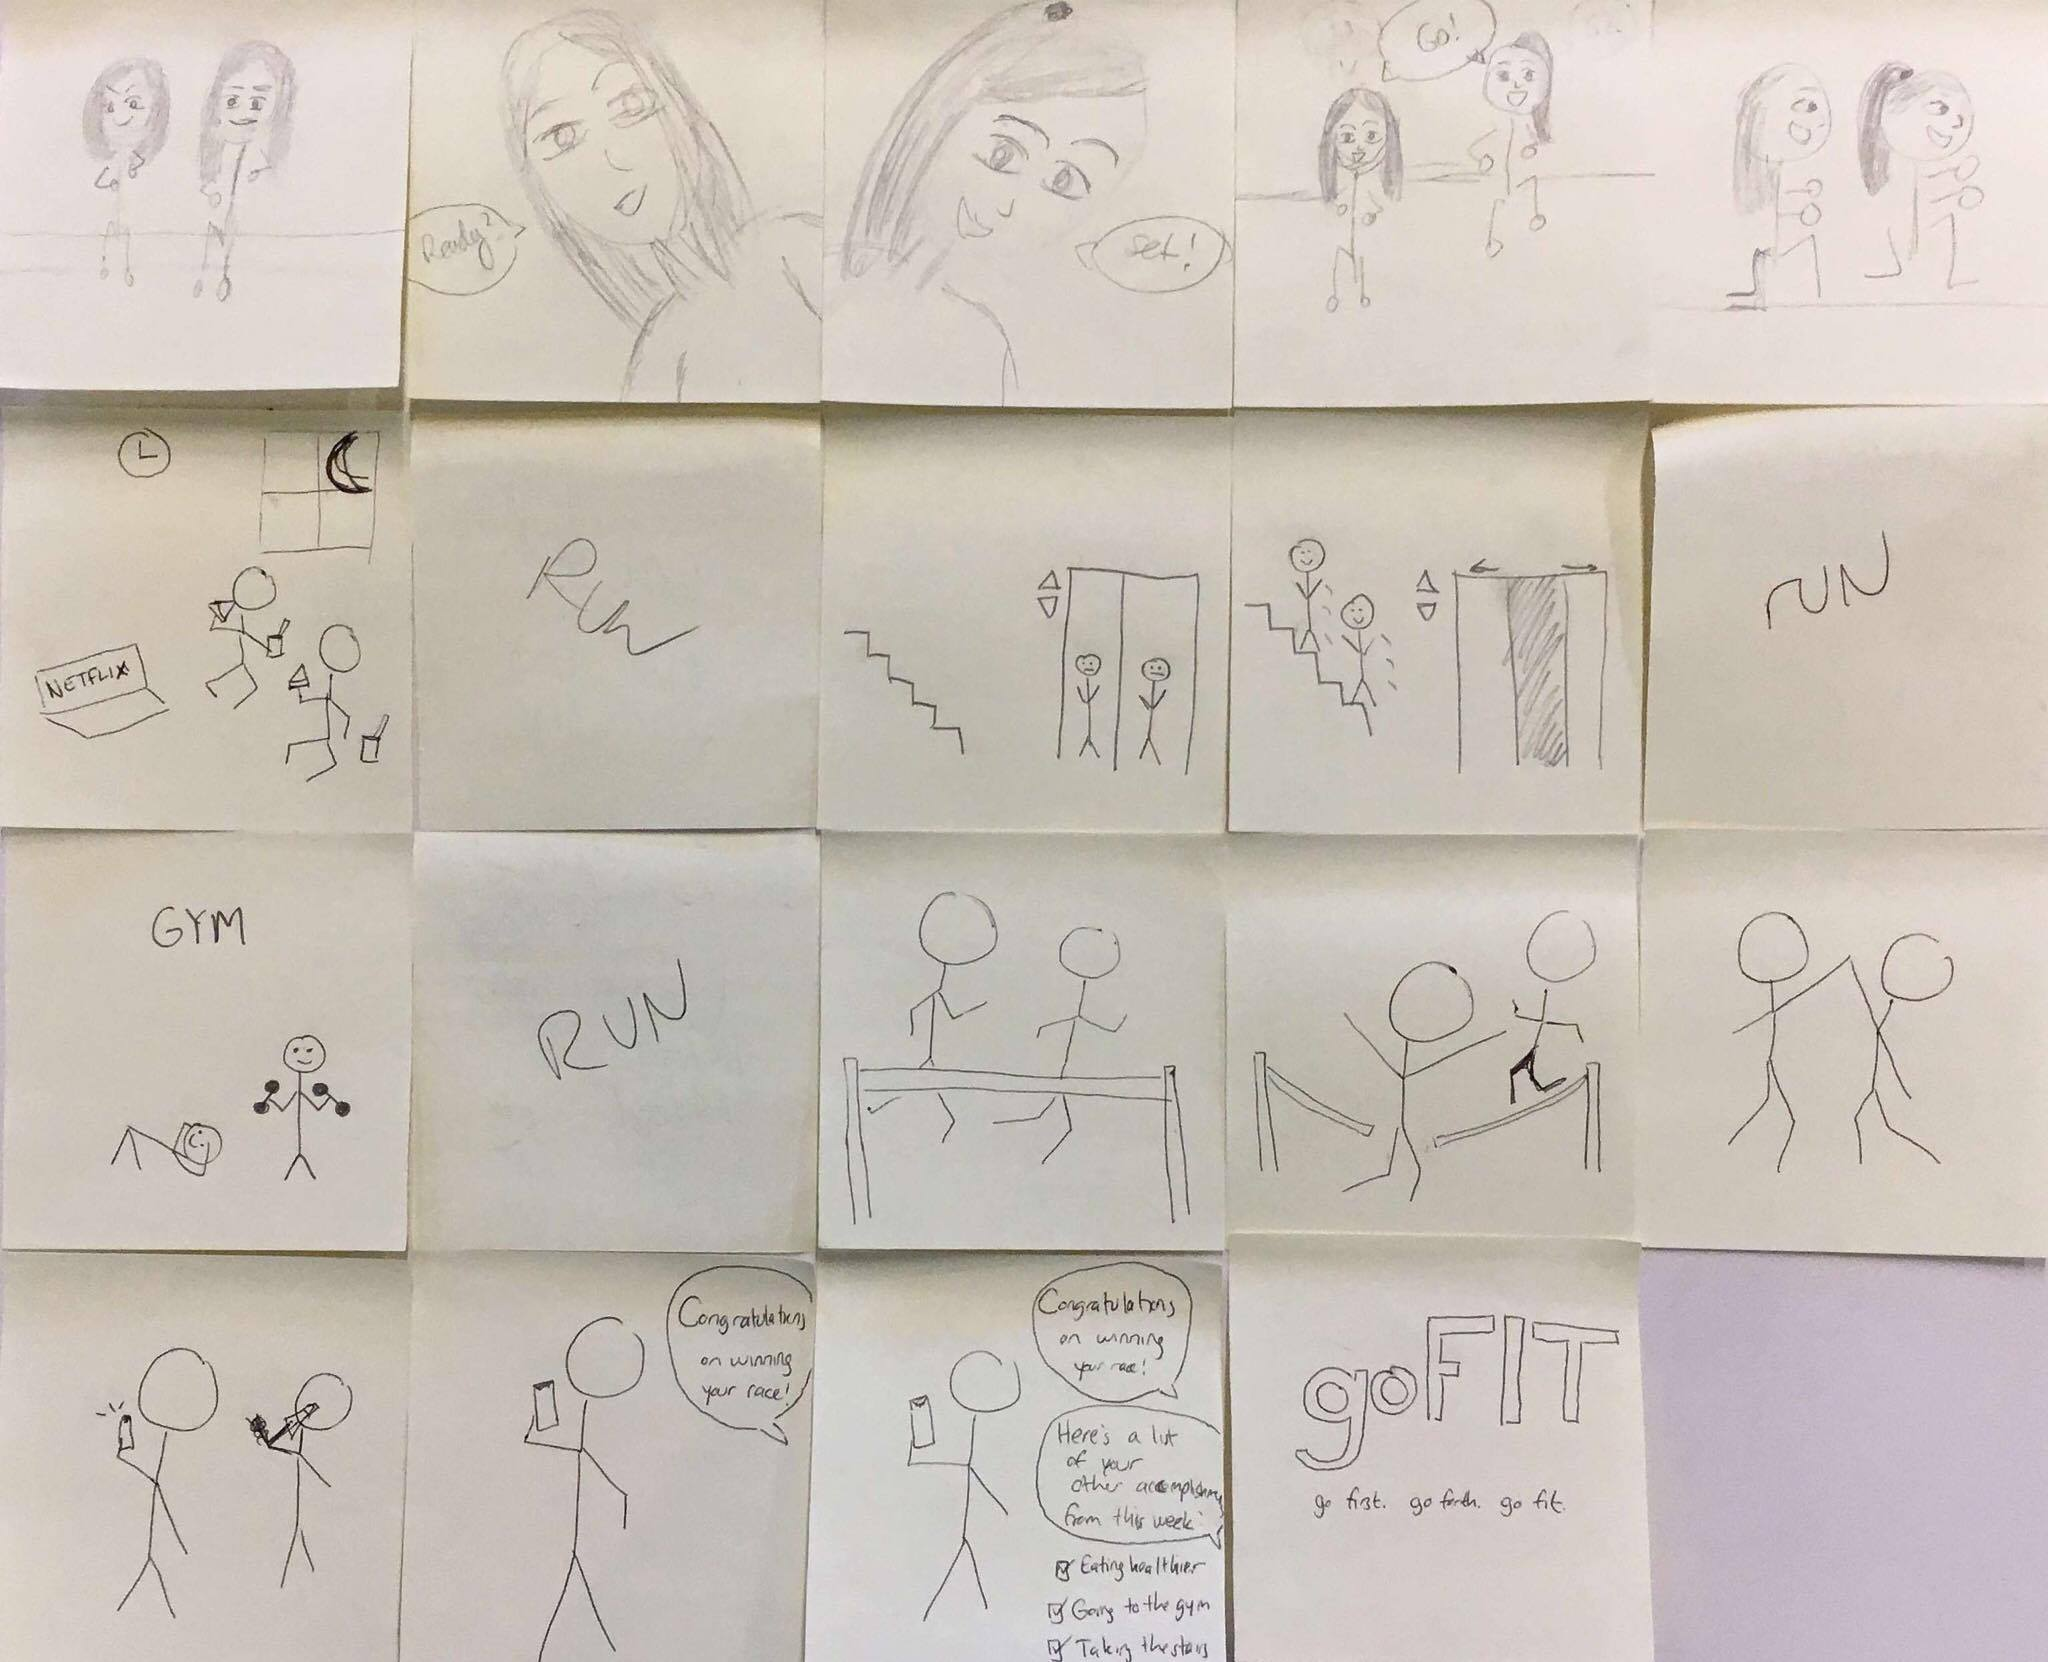 Ready?
Set!
Go!
NETFLIX
RUN
RUN
GYM
RUN
Congratulations
on winning
your race!
Congratulations
on winning
your race!
Here's a list
of your
other accomplishments
from this week:
Eating healthier
Going to the gym
Taking the stairs
goFIT
go first. go forth. go fit.